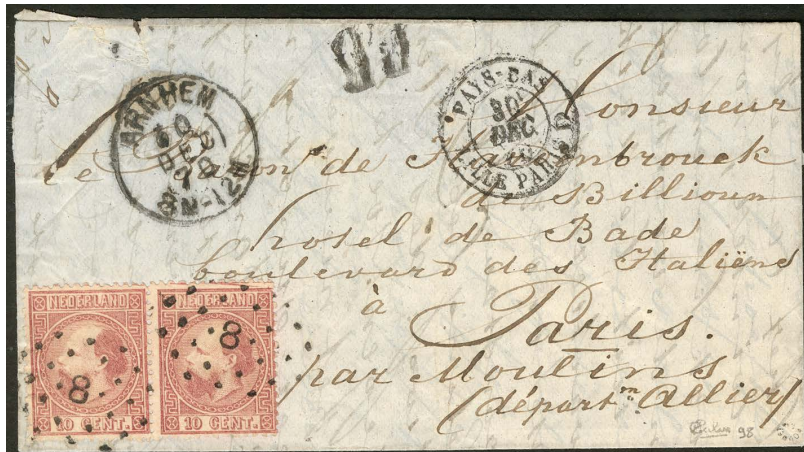 P.D.
ARNHEM
DEC
8N-12M
PAYS-BAS
30
DEC
LILLE PARIS
Monsieur
le Baron de
de Billioun
hotel de Bade
boulevard des Italiëns
à
Paris.
par Moulins
(départm. Allier)
NEDERLAND
8
10 CENT.
NEDERLAND
8
10 CENT.
98